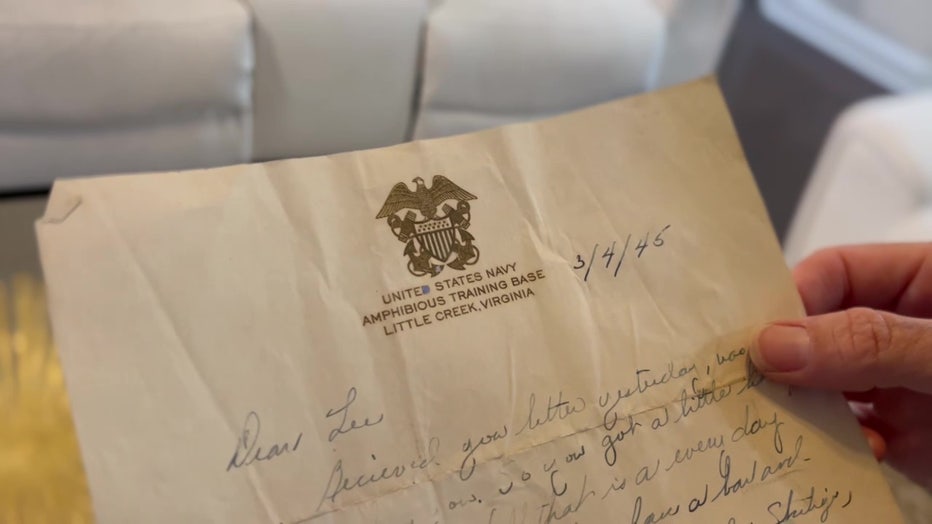 UNITED STATES NAVY
AMPHIBIOUS TRAINING BASE
LITTLE CREEK, VIRGINIA
3/4/45
Dear Lee
Recieved your letter yesterday, was
now. So you got a little
that is a every day
have a